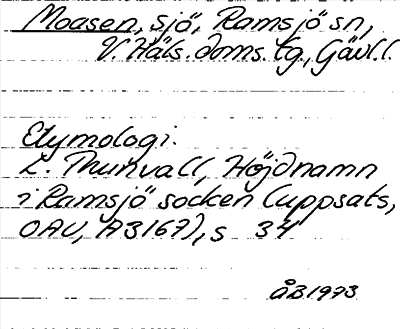 Moasen, sjö, Ramsjö sn,
V. Häls. doms. tg., Gävl.l.
Etymologi.
L. Thunvall, Höjdnamn
i Ramsjö socken (uppsats,
OAU, A3167), s 34
ÅB 1973